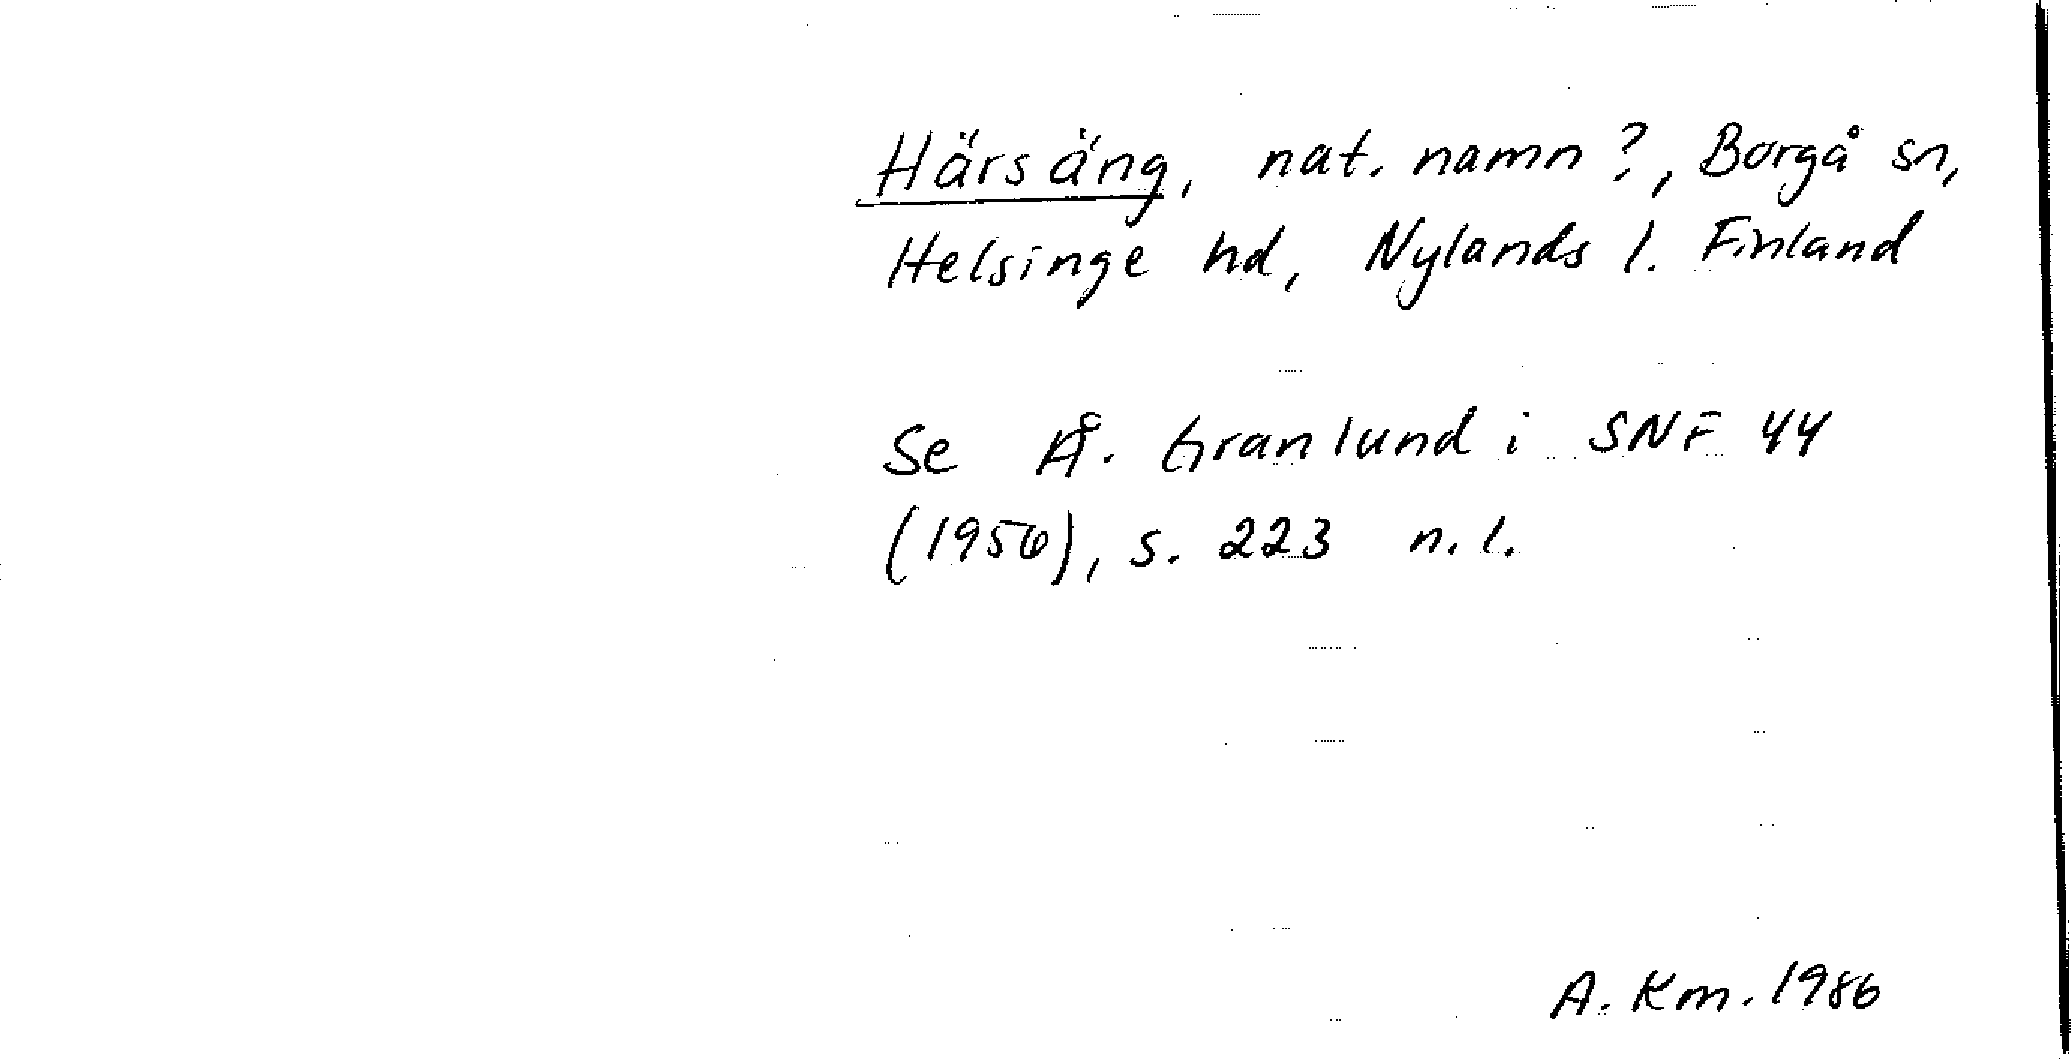 Härsäng, nat. namn?, Borgå sn,
Helsinge hd, Nylands l. Finland
Se Å. Granlund i SNF 44
(1956), s. 223 n.l.
A. Km. 1986